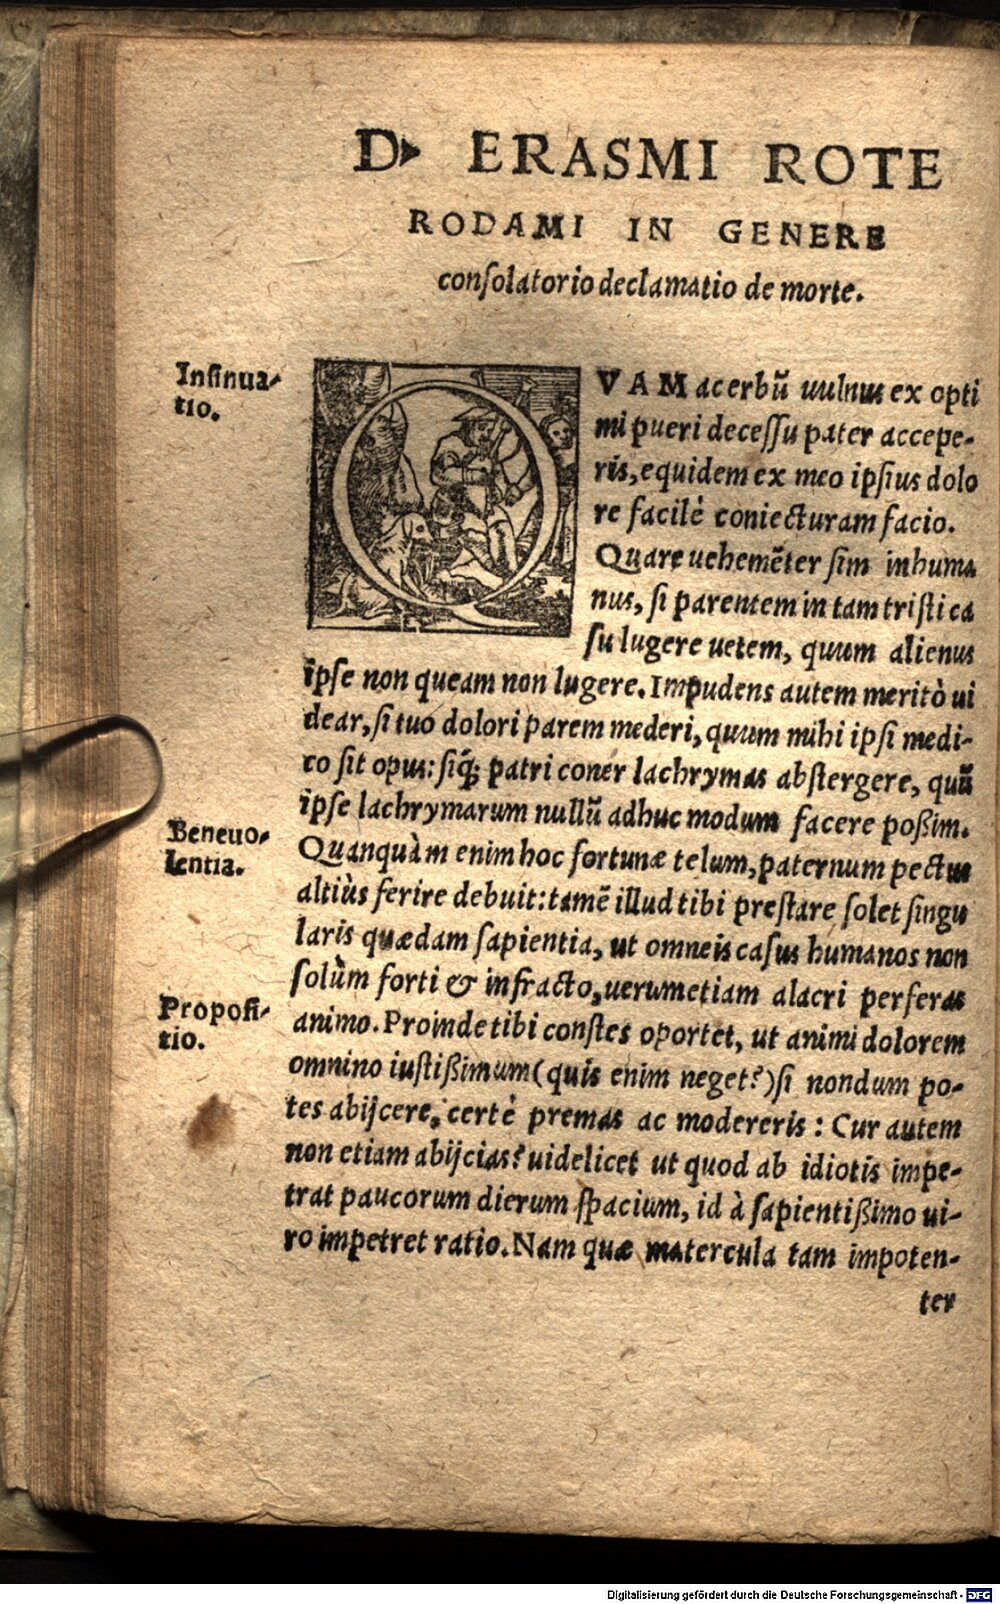 D. ERASMI ROTE
RODAMI IN GENERE
conſolatorio declamatio de morte.
Inſinua-
tio.
QVAM acerbũ uulnus ex opti
mi pueri deceſſu pater accepe-
ris, equidem ex meo ipſius dolo
re facilè coniecturam facio.
Quare uehemẽter ſim inhuma
nus, ſi parentem in tam triſti ca
ſu lugere uetem, quum alienus
ipſe non queam non lugere. Impudens autem meritò ui
dear, ſi tuo dolori parem mederi, quum mihi ipſi medi-
co ſit opus: ſiq́; patri coner lachrymas abſtergere, quũ
ipſe lachrymarum nullũ adhuc modum facere poßim.
Beneuo-
lentia.
Quanquàm enim hoc fortunæ telum, paternum pectus
altiùs ferire debuit: tamẽ illud tibi preſtare ſolet ſingu
laris quædam ſapientia, ut omneis caſus humanos non
ſolùm forti & infracto, uerumetiam alacri perferas
Propoſi-
tio.
animo. Proinde tibi conſtes oportet, ut animi dolorem
omnino iuſtißimum (quis enim neget?) ſi nondum po-
tes abijcere, certè premas ac modereris: Cur autem
non etiam abijcias? uidelicet ut quod ab idiotis impe-
trat paucorum dierum ſpacium, id à ſapientißimo ui-
ro impetret ratio. Nam quæ matercula tam impoten-
ter
Digitalisierung gefördert durch die Deutsche Forschungsgemeinschaft - DFG